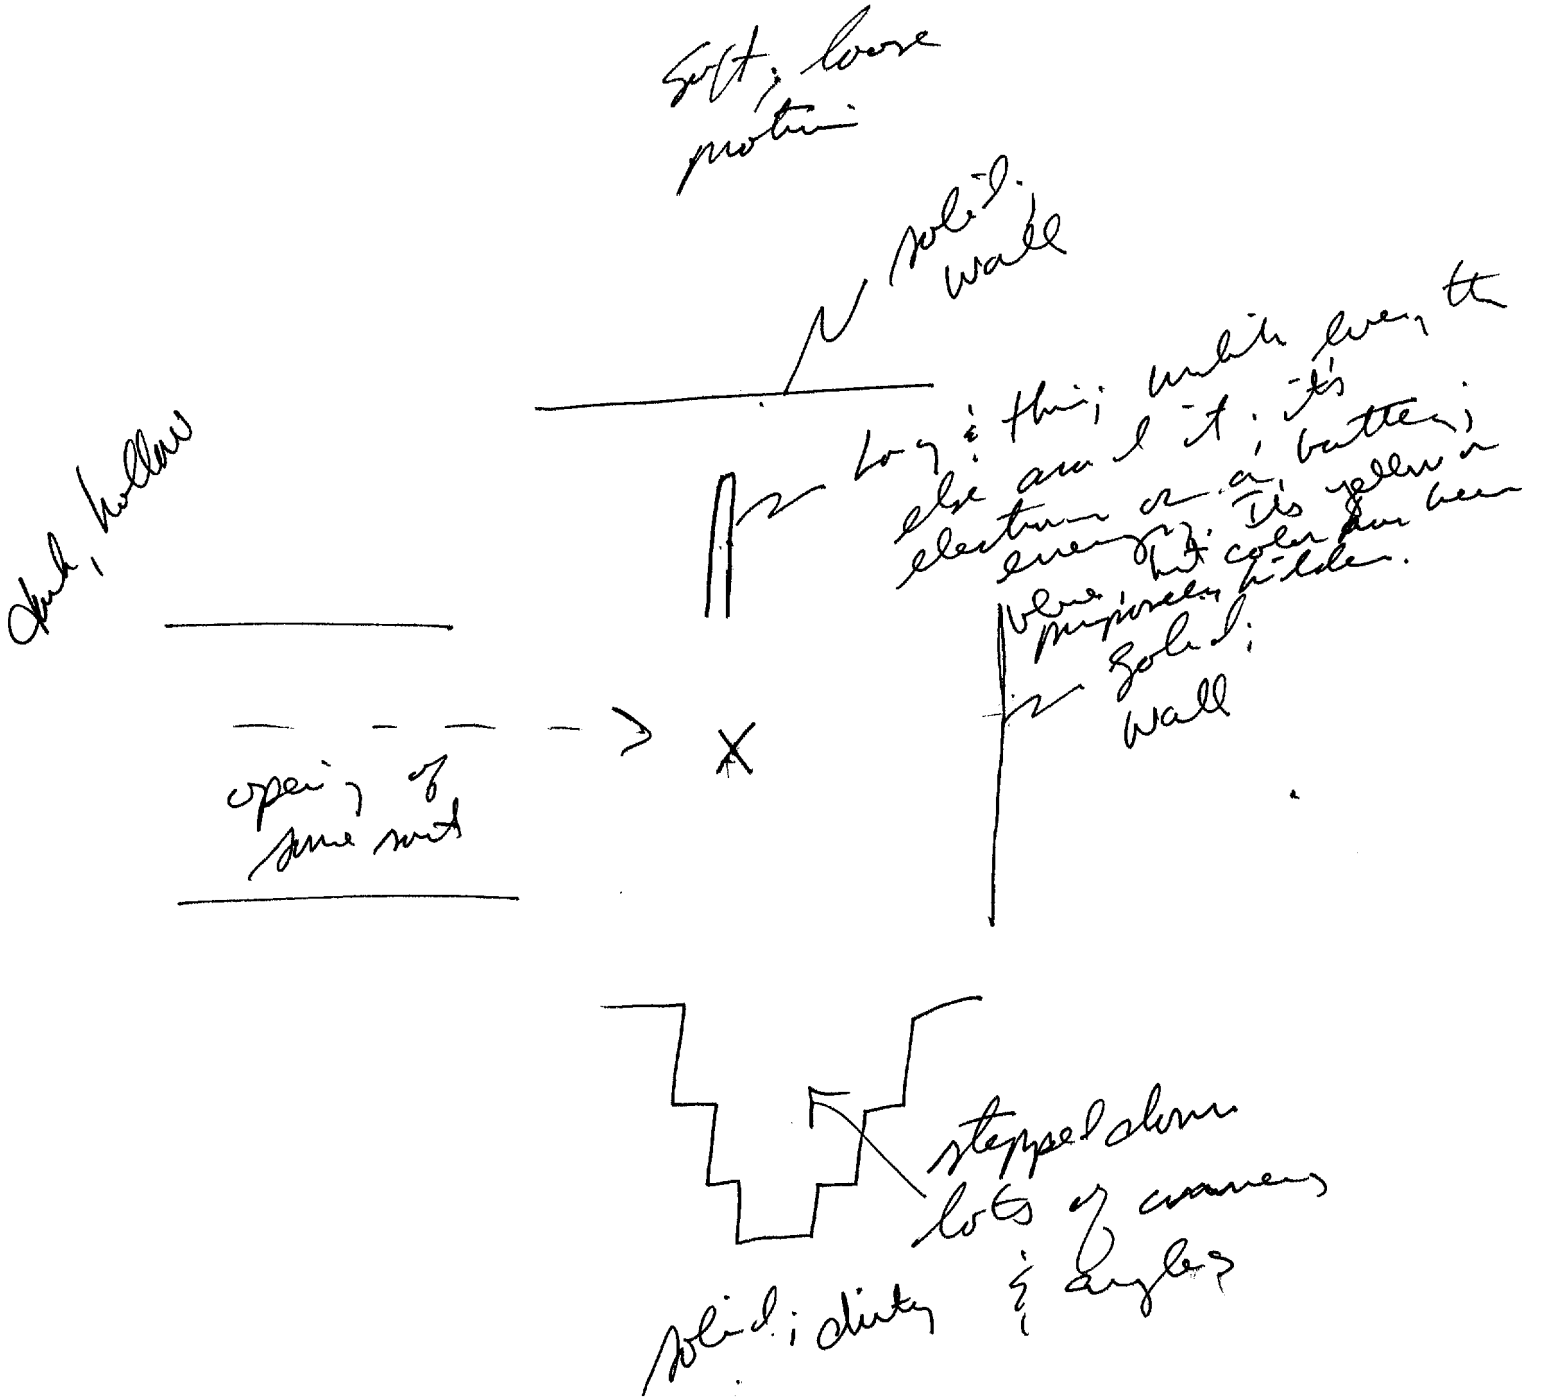 Soft; loose
motion
solid;
wall
Long & thin; unlike everyth
else around it. it's
electronic or a battery;
energy. Its yellow or
blue, but color has been
purposely hidden.
dark, hollow
solid;
wall
X
opening of
some sort
stepped down
lots of corners
& angles
solid; dirty